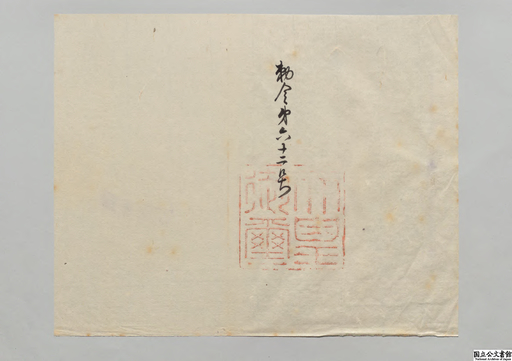 勅令第六十二号
天皇
御璽
国立公文書館
National Archives of Japan